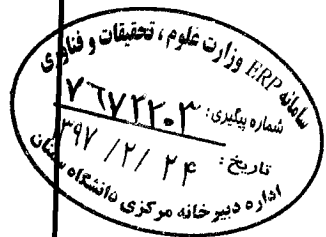 سامانه ERP وزارت علوم ، تحقیقات و فناوری
شماره پیگیری:
تاریخ: ۳۹۷ / ۲ / ۲۴
اداره دبیرخانه مرکزی دانشگاه سمنان